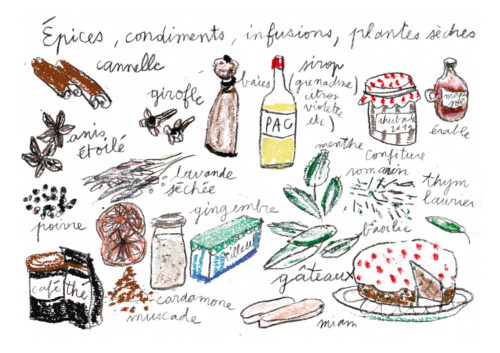 Épices, condiments, infusions, plantes sèches
cannelle
girofle
baies
sirop
(grenadine,
citron
violette
etc)
PAC
érable
anis
étoilé
menthe
confiture
lavande
séchée
romarin
thym
laurier
poivre
gingembre
tilleul
basilic
café
thé
gâteaux
cardamome
muscade
miam